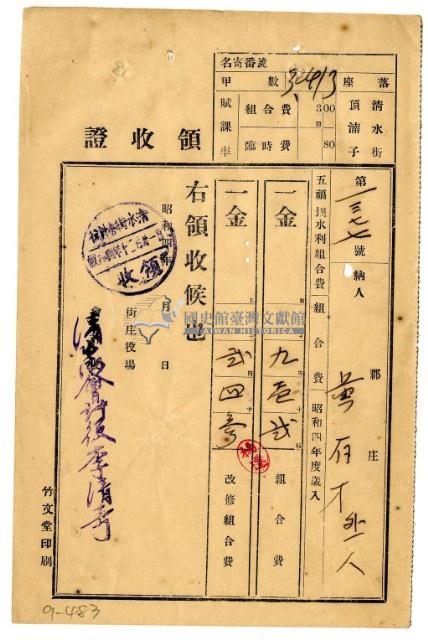 名寄番號
甲數 3.4913
賦課率
組合費 3圓00
臨時費 80
座落
清水街
頂湳子
領收證
第一三七七號 納入
郡
庄
黃石才外一人
五福圳水利組合費 組合費 昭和四年度歲入
一金 九壱弐 組合費
一金 弐四參 改修組合費
右領收候也
昭和 年 月 日
領收
街庄役場
會計役李清奇
竹文堂印刷
國史館臺灣文獻館
TAIWAN HISTORICA
9-483